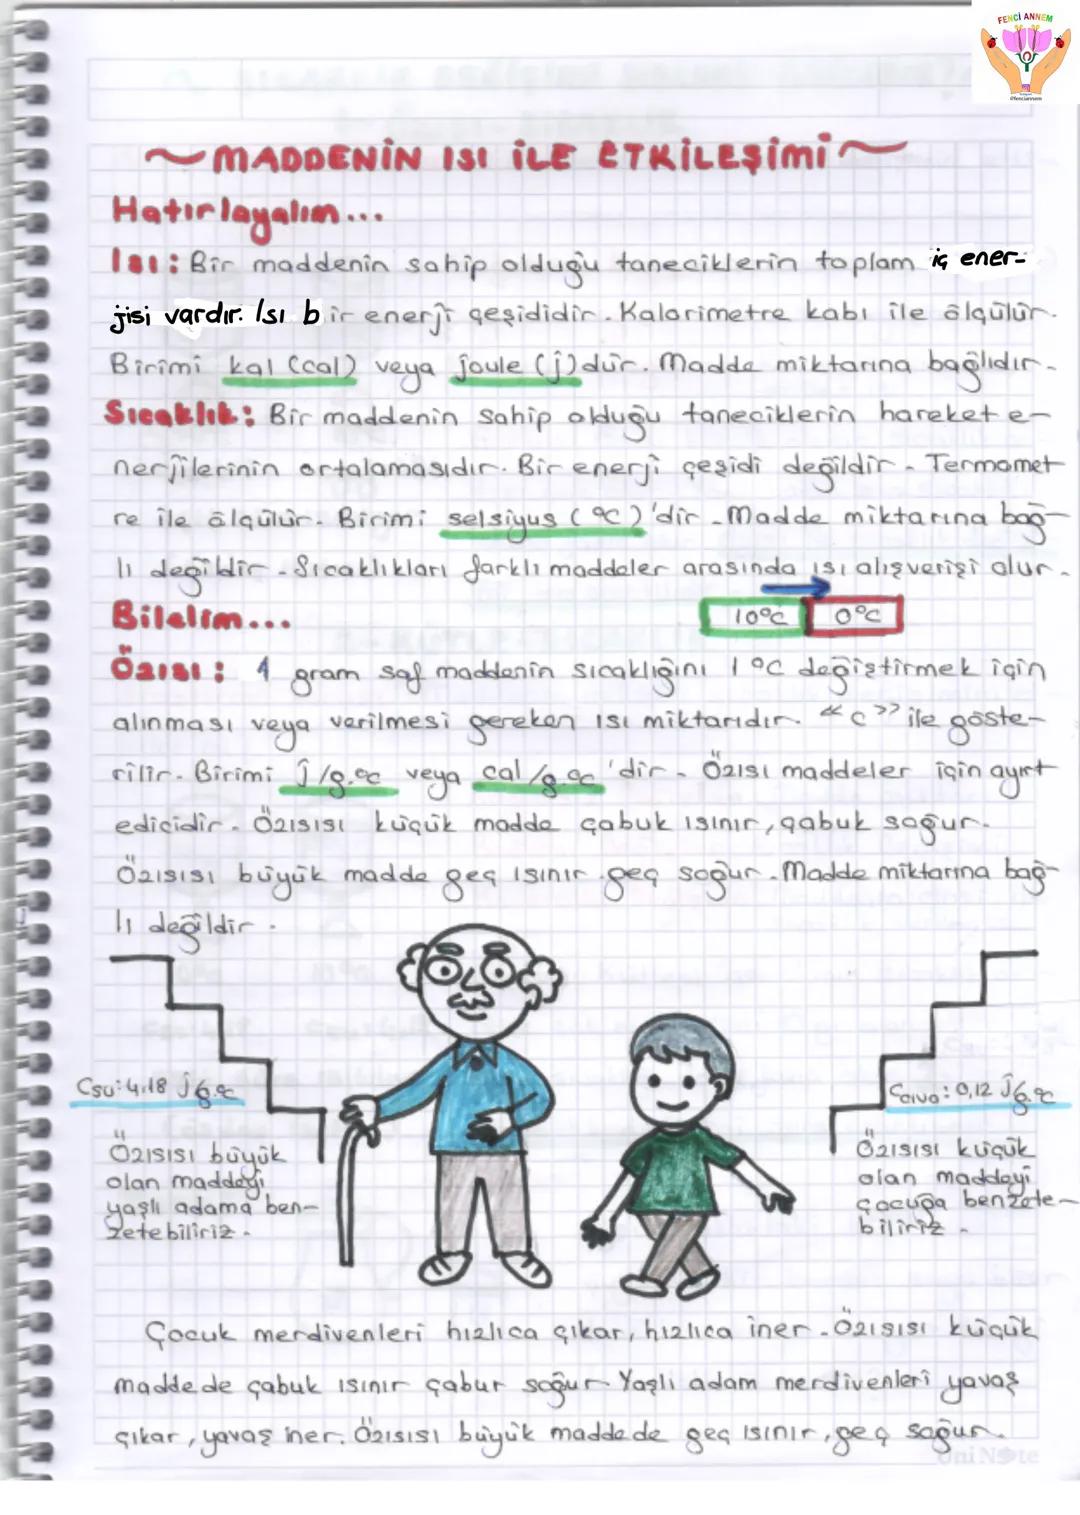 FENCİ ANNEM
@fenciannem
~MADDENİN ISI İLE ETKİLEŞİMİ~
Hatırlayalım...
Isı: Bir maddenin sahip olduğu taneciklerin toplam iç ener-
jisi vardır. Isı bir enerji çeşididir. Kalorimetre kabı ile ölçülür.
Birimi kal (cal) veya joule (j)dür. Madde miktarına bağlıdır.
Sıcaklık: Bir maddenin sahip olduğu taneciklerin hareket e-
nerjilerinin ortalamasıdır. Bir enerji çeşidi değildir. Termomet
re ile ölçülür. Birimi selsiyus (°C)'dir. Madde miktarına bağ-
lı değildir. Sıcaklıkları farklı maddeler arasında ısı alışverişi olur.
Bilelim...
10°C 0°C
Özısı: 1 gram saf maddenin sıcaklığını 1 °C değiştirmek için
alınması veya verilmesi gereken ısı miktarıdır. "c" ile göste-
rilir. Birimi j/g.°C veya cal/g.°C 'dir. Özısı maddeler için ayırt
edicidir. Özısısı küçük madde çabuk ısınır, çabuk soğur.
Özısısı büyük madde geç ısınır geç soğur. Madde miktarına bağ-
lı değildir.
Csu: 4,18 J/g.°C
Özısısı büyük
olan maddeyi
yaşlı adama ben-
zetebiliriz.
Cciva: 0,12 J/g.°C
Özısısı küçük
olan maddeyi
çocuğa benzete-
biliriz.
Çocuk merdivenleri hızlıca çıkar, hızlıca iner. Özısısı küçük
maddede çabuk ısınır çabur soğur. Yaşlı adam merdivenleri yavaş
çıkar, yavaş iner. Özısısı büyük maddede geç ısınır, geç soğur.
UniNote